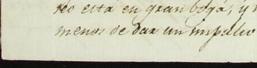 no está en gran boga, y
menos de dar un impulso